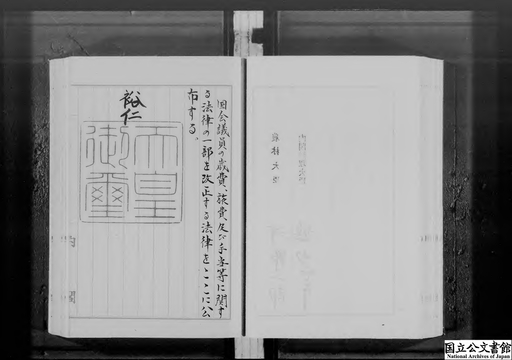 国会議員の歳費、旅費及び手当等に関す
る法律の一部を改正する法律をここに公
布する。
裕仁
天皇
御璽
国立公文書館
National Archives of Japan